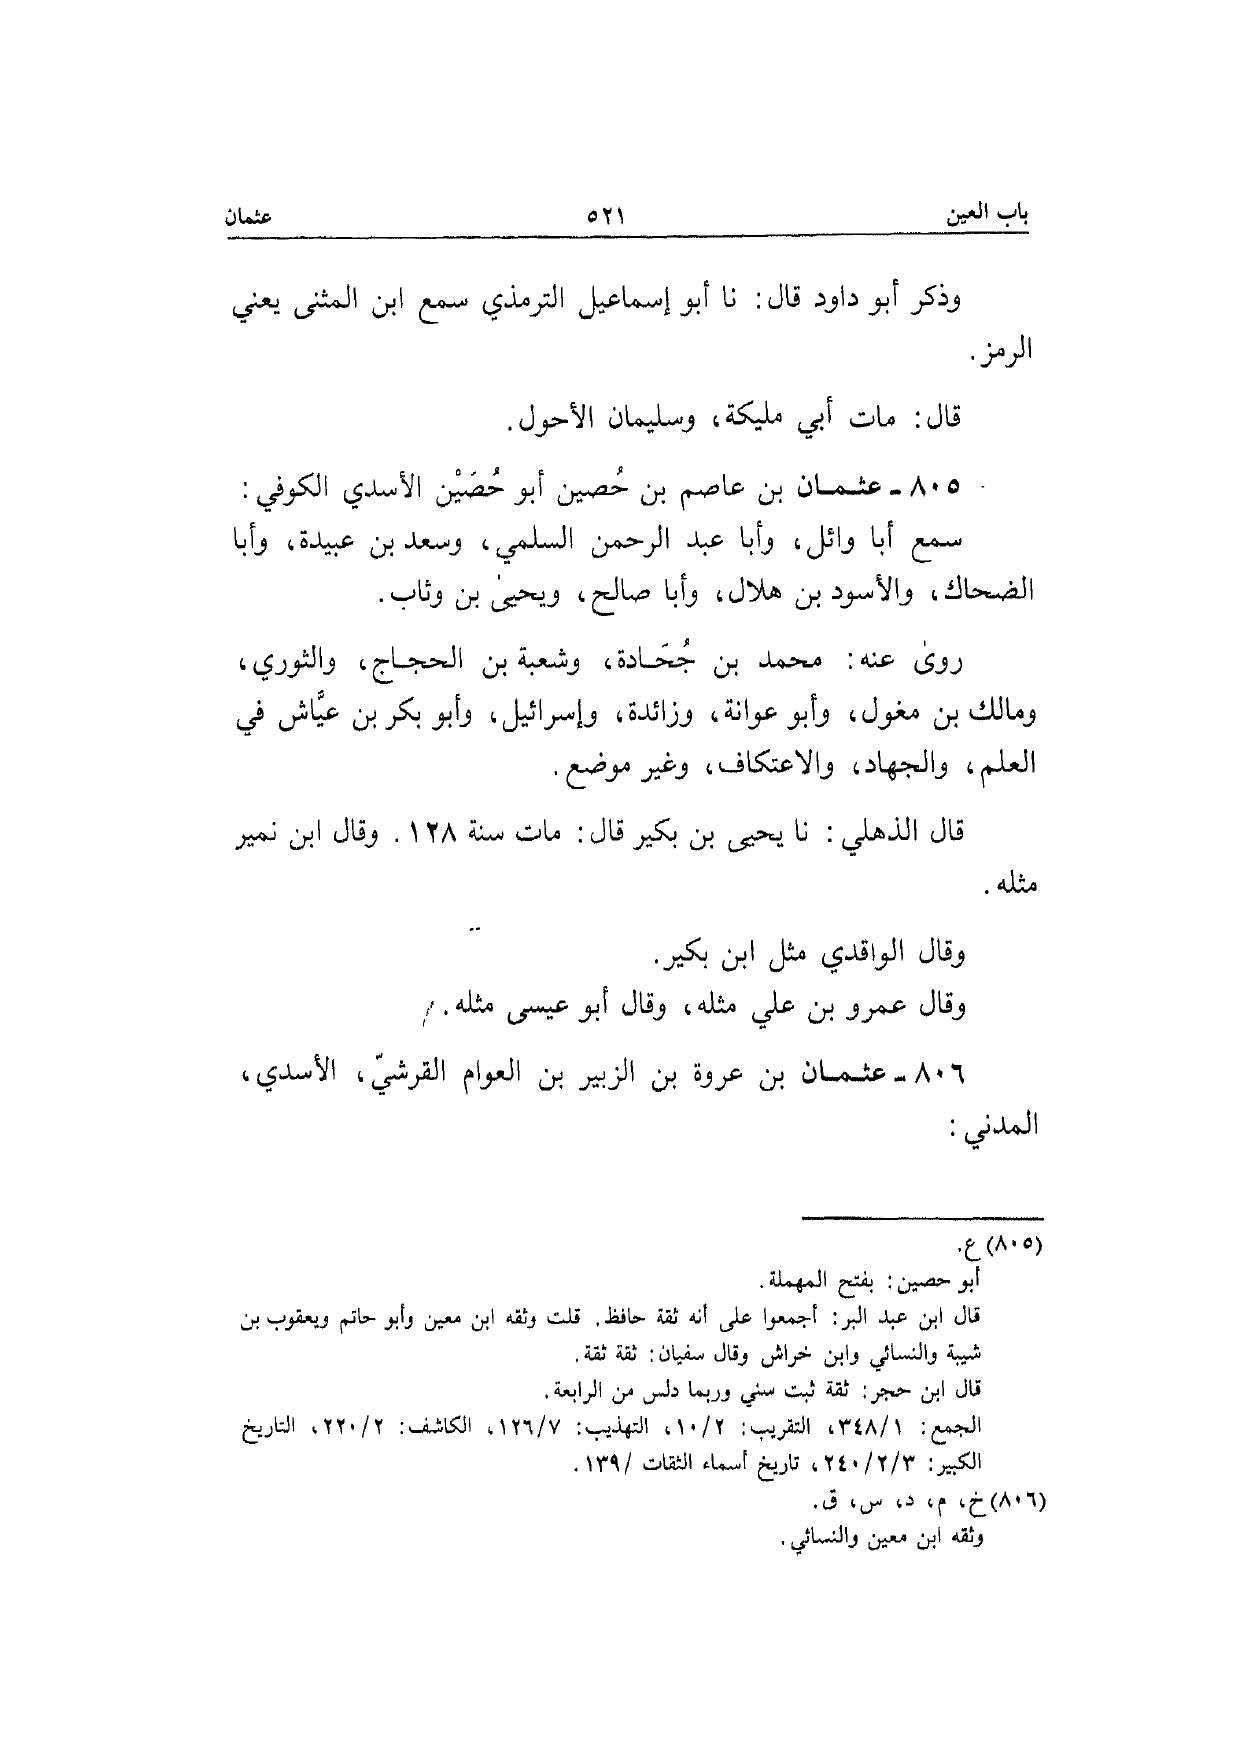 باب العين ٥٢١ عثمان
وذكر أبو داود قال: نا أبو إسماعيل الترمذي سمع ابن المثنى يعني
الرمز.
قال: مات أبي مليكة، وسليمان الأحول.
٨٠٥ ـ عثمان بن عاصم بن حُصين أبو حُصَيْن الأسدي الكوفي:
سمع أبا وائل، وأبا عبد الرحمن السلمي، وسعد بن عبيدة، وأبا
الضحاك، والأسود بن هلال، وأبا صالح، ويحيىٰ بن وثاب.
روىٰ عنه: محمد بن جُحَادة، وشعبة بن الحجاج، والثوري،
ومالك بن مغول، وأبو عوانة، وزائدة، وإسرائيل، وأبو بكر بن عيَّاش في
العلم، والجهاد، والاعتكاف، وغير موضع.
قال الذهلي: نا يحيى بن بكير قال: مات سنة ١٢٨. وقال ابن نمير
مثله.
وقال الواقدي مثل ابن بكير.
وقال عمرو بن علي مثله، وقال أبو عيسى مثله.
٨٠٦ ـ عثمان بن عروة بن الزبير بن العوام القرشيّ، الأسدي،
المدني:
(٨٠٥) ع.
أبو حصين: بفتح المهملة.
قال ابن عبد البر: أجمعوا على أنه ثقة حافظ. قلت وثقه ابن معين وأبو حاتم ويعقوب بن
شيبة والنسائي وابن خراش وقال سفيان: ثقة ثقة.
قال ابن حجر: ثقة ثبت سني وربما دلس من الرابعة.
الجمع: ٣٤٨/١، التقريب: ١٠/٢، التهذيب: ١٢٦/٧، الكاشف: ٢٢٠/٢، التاريخ
الكبير: ٢٤٠/٢/٣، تاريخ أسماء الثقات /١٣٩.
(٨٠٦) خ، م، د، س، ق.
وثقه ابن معين والنسائي.